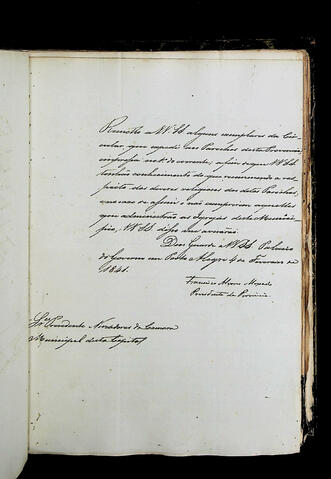 Remetto a VV. SS. alguns exemplares da Cir
cular, que expedi aos Parochos desta Provincia
impressa no 1º do corrente; a fim de que VV. SS.
tenhão conhecimento do que recommendo a res
peito dos deveres religiosos dos ditos Parochos,
e no caso de assim o não cumprirem aquelles
que administrão as Igrejas deste Munici
pio, VV. SS. disso me
Deos Guarde a VV. SS. Palacio
do Governo em Porto Alegre 4 de Fevereiro de
1841.
Francisco Alvares Machado
Presidente da Provincia
Srs. Presidente e Vereadores da Camara
Municipal desta Capital